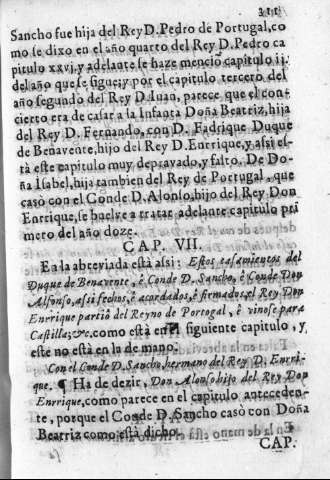 311
Sancho fue hija del Rey D. Pedro de Portugal, co
mo se dixo en el año quarto del Rey D. Pedro ca
pitulo xxvj. y adelante se haze mencio capitulo ij.
del año que se sigue; y por el capitulo tercero del
año segundo del Rey D. Iuan, parece que el con-
cierto era de casar a la Infanta Doña Beatriz, hija
del Rey D. Fernando, con D. Fadrique Duque
de Benavente, hijo del Rey D. Enrrique, y assi es-
tà este capitulo muy depravado, y falto. De Do-
ña Isabel, hija tambien del Rey de Portugal, que
casò con el Conde D. Alonso, hijo del Rey Don
Enrrique, se buelve a tratar adelante capitulo pri
mero del año doze.
CAP. VII.
En la abreviada està assi: Estos casamientos del
Duque de Benavente, è Conde D. Sancho, è Conde Don
Alfonso, assi fechos, è acordados, è firmados, el Rey Don
Enrrique partiò del Reyno de Portugal, è vinose para
Castilla; &c. como està en el siguiente capitulo, y
este no està en la de mano.
Con el Conde D. Sancho, hermano del Rey D. Enrri-
que. ¶ Ha de dezir, Don Alonso hijo del Rey Don
Enrrique, como parece en el capitulo anteceden-
te, porque el Conde D. Sancho casò con Doña
Beatriz como està dicho.
CAP.